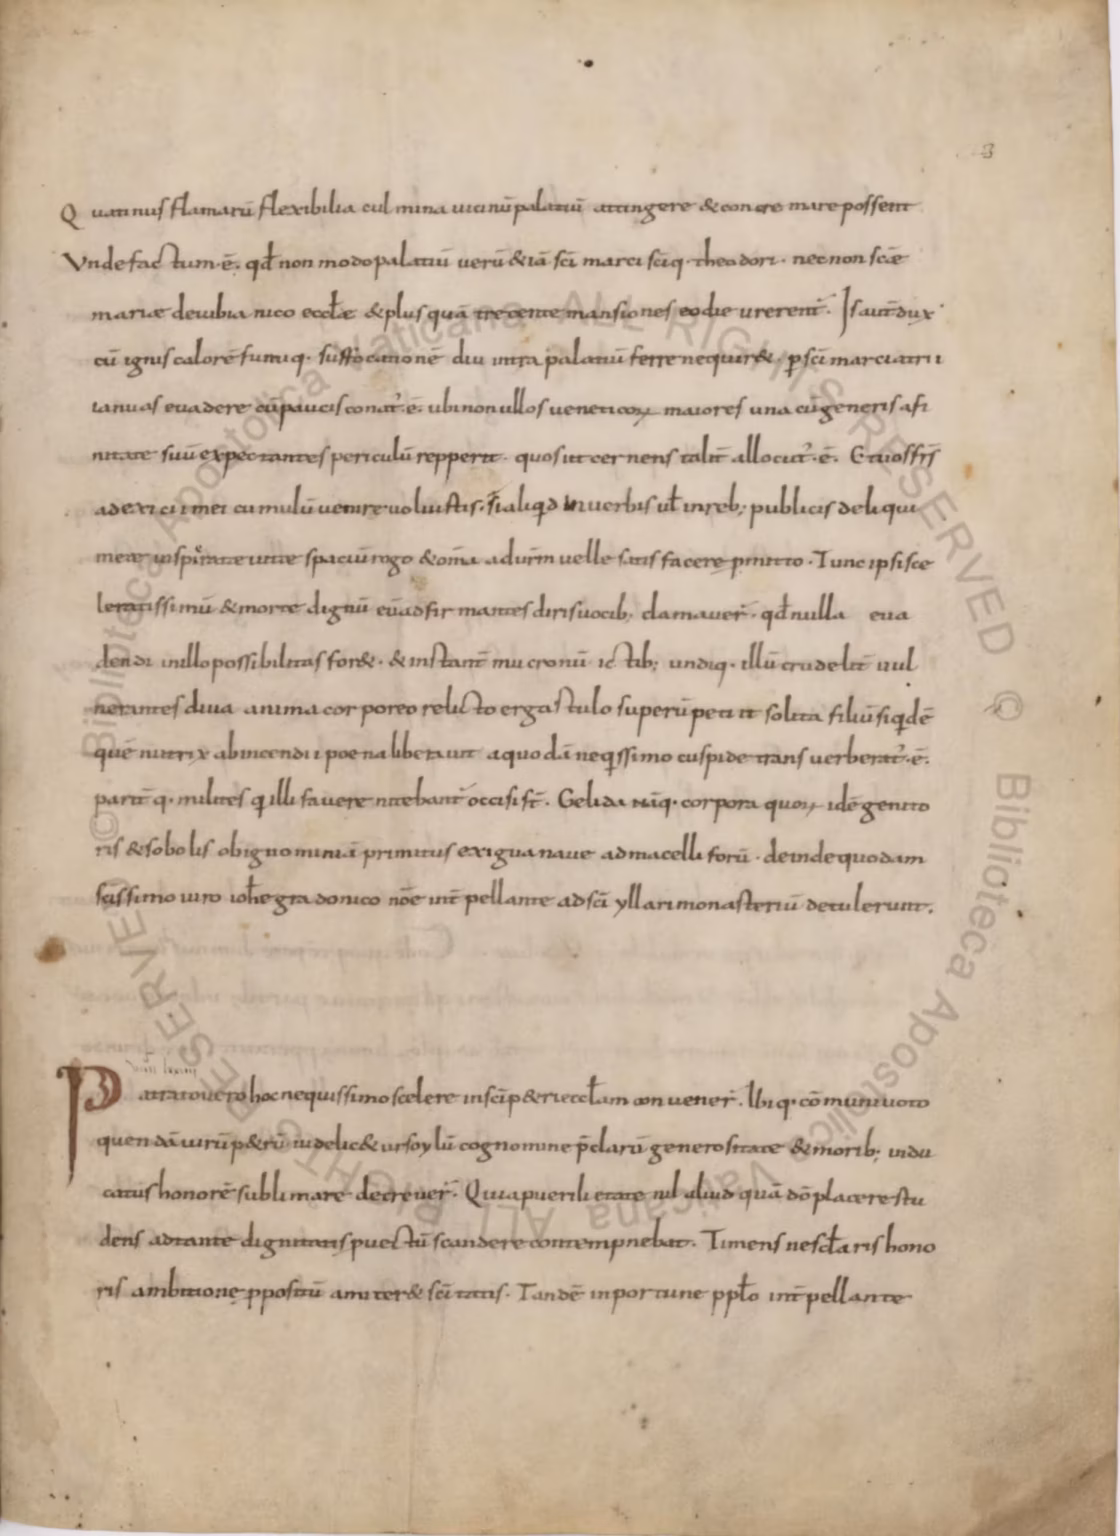 3
Quatinus flamarū flexibilia culmina uicinū palatiū attingere & concremare possent
Vnde factum ē. qđ non modo palatiū uerū & iā sc̄i marci sc̄iq· theodori· necnon sc̄æ
mariæ deiubianico eccłæ & plus quā trecente mansiones eo die urerent̄. Is aut̄ dux
cū ignis calorē fumiq· suffocationē diu intra palatiū ferre nequir&· ꝑ sc̄i marci atrii
ianuas euadere cū paucis conat̄ ē. ubi nonullos ueneticoꝝ maiores una cū generis afi
nitate suū expectantes periculū repperit· quos ut cernens talit̄ allocut̄ ē. Et uos fr̄s
ad exicii mei cumulū uenire uoluistis. si aliqd in uerbis uł in reb; publicis deliqui
meæ inspirate uite spaciū rogo & om̄a ad ur̄m uelle satisfacere ꝓmitto· Tunc ipsi sce
leratissimū & morte dignū eū adfirmantes diris uocib; clamauer̄· qđ nulla eua
dendi in illo possibilitas for&· & instant̄ mucronū ictib; undiq· illū crudelit̄ uul
nerantes diua anima corporeo relicto ergastulo superū petiit solita filiū siqdē
quē nutrix ab incendii poena liberauit a quodā neqssimo cuspide transuerberat̄ ē.
parit̄q· milites q illi fauere nitebant̄ occisi st̄. Gelida nāq· corpora quoꝝ idē genito
ris & sobolis ob ignominiā primitus exigua naue ad macelli forū· deinde quodam
sc̄issimo uiro ioħe gradonico nōe int̄pellante ad sc̄i yllari monasteriū detulerunt.
Patrato uero hoc nequissimo scelere in sc̄i p&ri eccłam conuener̄. Ibiq· cōmuni uoto
quendā uirū p&rū uidelic& ursoylū cognomine p̄clarū generositate & morib; in du
catus honorē sublimare decreuer̄. Qui a puerili etate nil aliud quā dō placere stu
dens ad tante dignitatis ꝓuectū scandere contempnebat. Timens ne scłaris hono
ris ambitione ꝓpositū amitter& sc̄itatis. Tandē inportune ppło int̄pellante